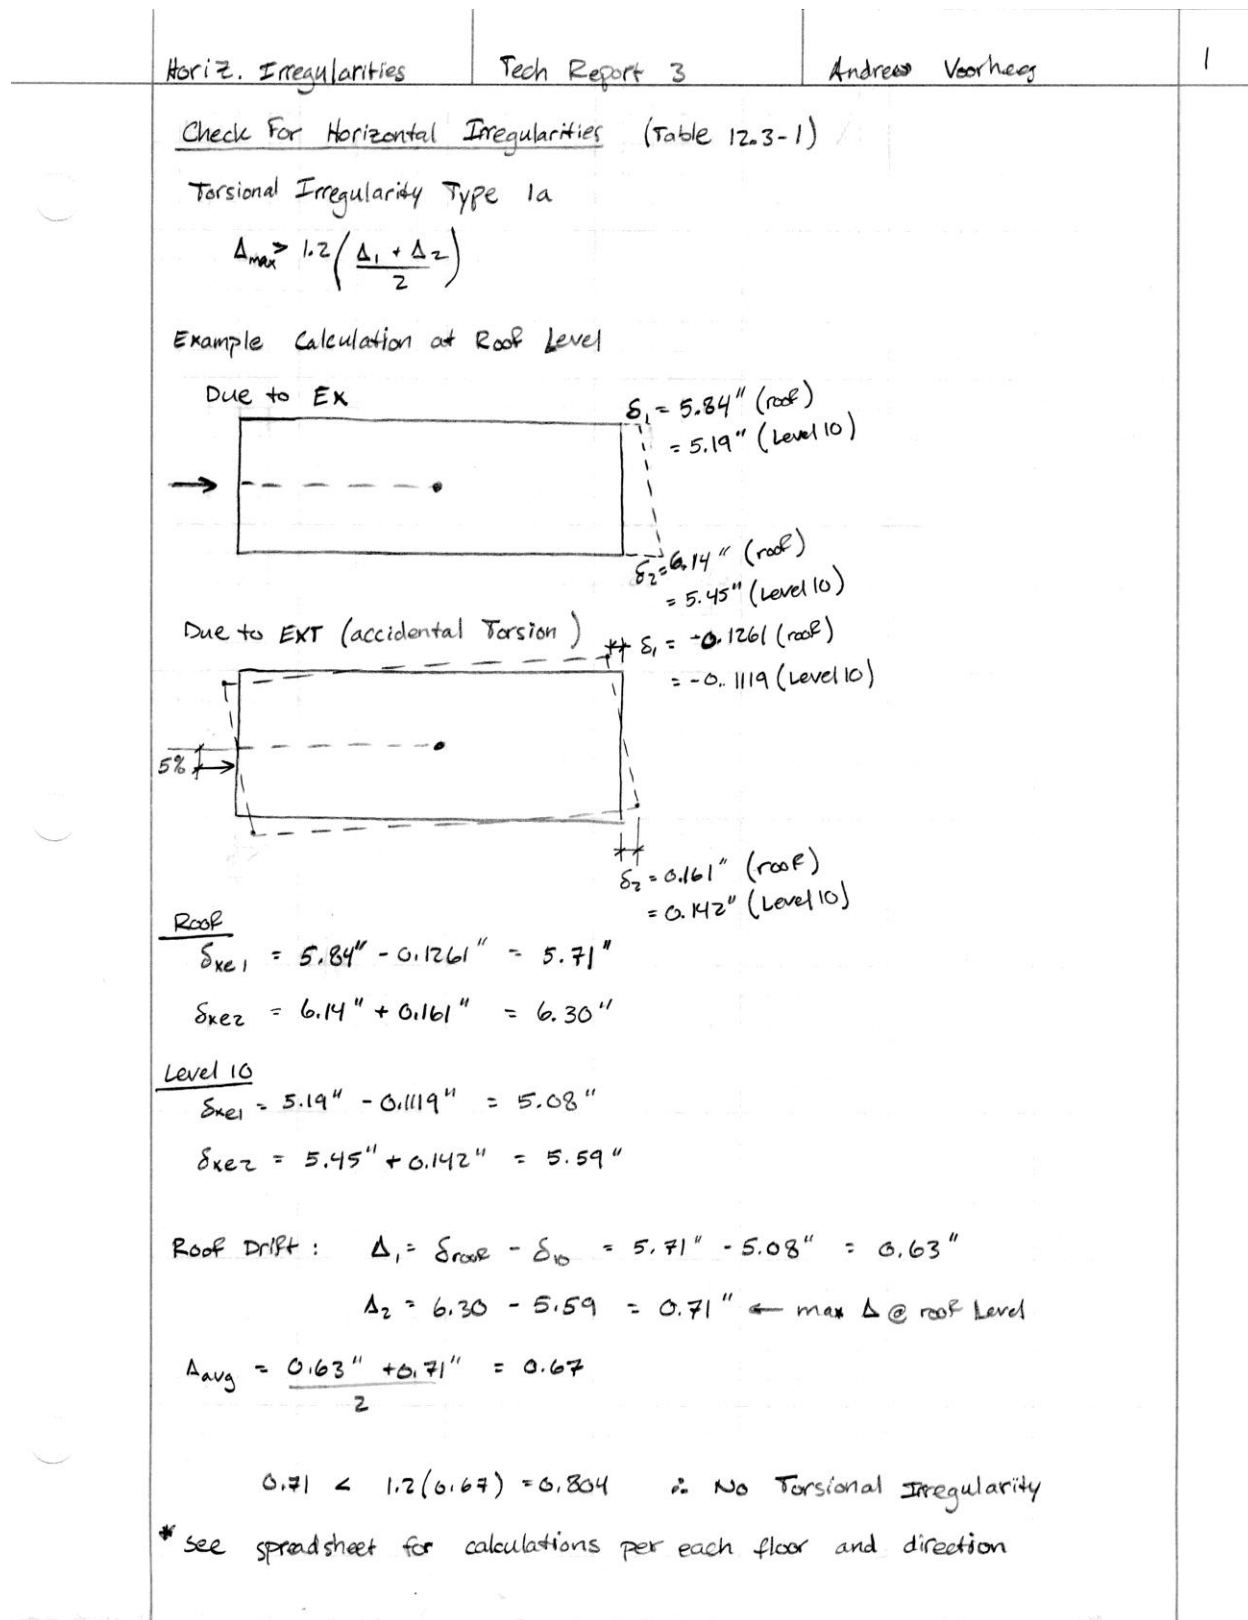 Horiz. Irregularities Tech Report 3 Andrew Voorhees 1
Check For Horizontal Irregularities (Table 12.3-1)
Torsional Irregularity Type 1a
Δmax > 1.2 ( (Δ1 + Δ2) / 2 )
Example Calculation at Roof Level
Due to EX
δ1 = 5.84" (roof)
= 5.19" (Level 10)
δ2 = 6.14" (roof)
= 5.45" (Level 10)
Due to EXT (accidental Torsion)
δ1 = -0.1261 (roof)
= -0.1119 (Level 10)
5%
δ2 = 0.161" (roof)
= 0.142" (Level 10)
Roof
δxe1 = 5.84" - 0.1261" = 5.71"
δxe2 = 6.14" + 0.161" = 6.30"
Level 10
δxe1 = 5.19" - 0.1119" = 5.08"
δxe2 = 5.45" + 0.142" = 5.59"
Roof Drift: Δ1 = δroof - δ10 = 5.71" - 5.08" = 0.63"
Δ2 = 6.30 - 5.59 = 0.71" ← max Δ @ roof Level
Δavg = (0.63" + 0.71") / 2 = 0.67
0.71 < 1.2(0.67) = 0.804 ∴ No Torsional Irregularity
* see spreadsheet for calculations per each floor and direction